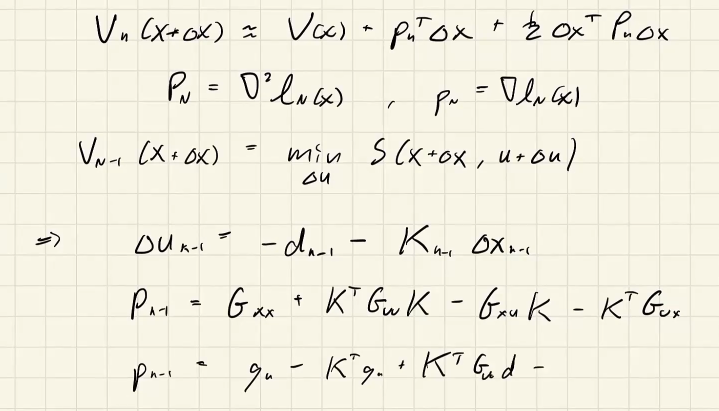 Vₙ(x+Δx) ≈ V(x) + pₙᵀΔx + ½ Δxᵀ PₙΔx
P_N = ∇²l_N(x) , p_N = ∇l_N(x)
V_{N-1}(x+Δx) = min_{Δu} S(x+Δx, u+Δu)
⇒ Δu_{n-1} = -d_{n-1} - K_{n-1} Δx_{n-1}
P_{n-1} = Gₓₓ + KᵀGᵤᵤK - GₓᵤK - KᵀGᵤₓ
p_{n-1} = gₙ - Kᵀgᵤ + KᵀGᵤᵤd -